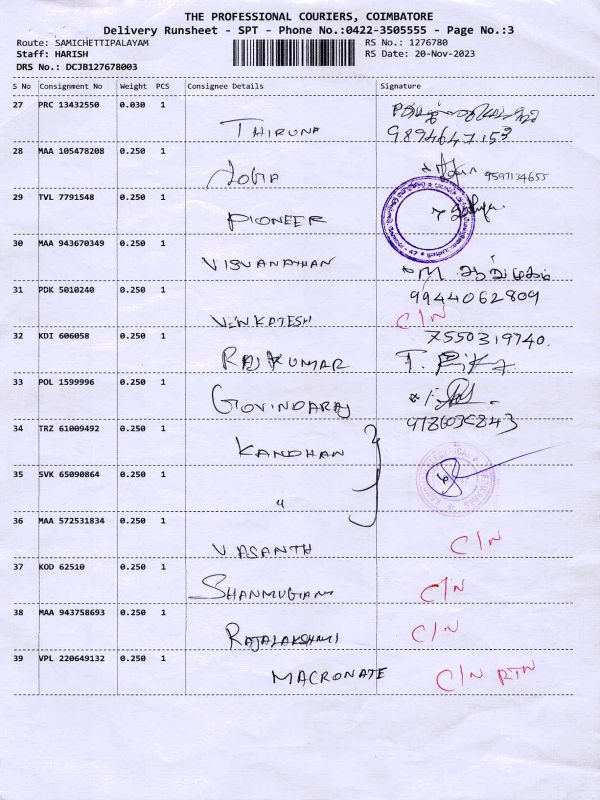 THE PROFESSIONAL COURIERS, COIMBATORE
Delivery Runsheet - SPT - Phone No.:0422-3505555 - Page No.:3
Route: SAMICHETTIPALAYAM RS No.: 1276780
Staff: HARISH RS Date: 20-Nov-2023
DRS No.: DCJB127678003
S No Consignment No Weight PCS Consignee Details Signature
27 PRC 13432550 0.030 1
THIRUNA 9894647153
28 MAA 105478208 0.250 1
9597134655
29 TVL 7791548 0.250 1
PIONEER
30 MAA 943670349 0.250 1
VISVANATHAN M.
31 PDK 5010240 0.250 1 9944062809
VENKATESH C/N
32 KDI 606058 0.250 1 7550319740.
RAJKUMAR
33 POL 1599996 0.250 1
GOVINDARAJ
34 TRZ 61009492 0.250 1
KANDHAN
35 SVK 65090864 0.250 1
"
36 MAA 572531834 0.250 1
VASANTH C/N
37 KOD 62510 0.250 1
SHANMUGAM C/N
38 MAA 943758693 0.250 1
RAJALAKSHMI C/N
39 VPL 220649132 0.250 1
MACRONATE C/N RTN